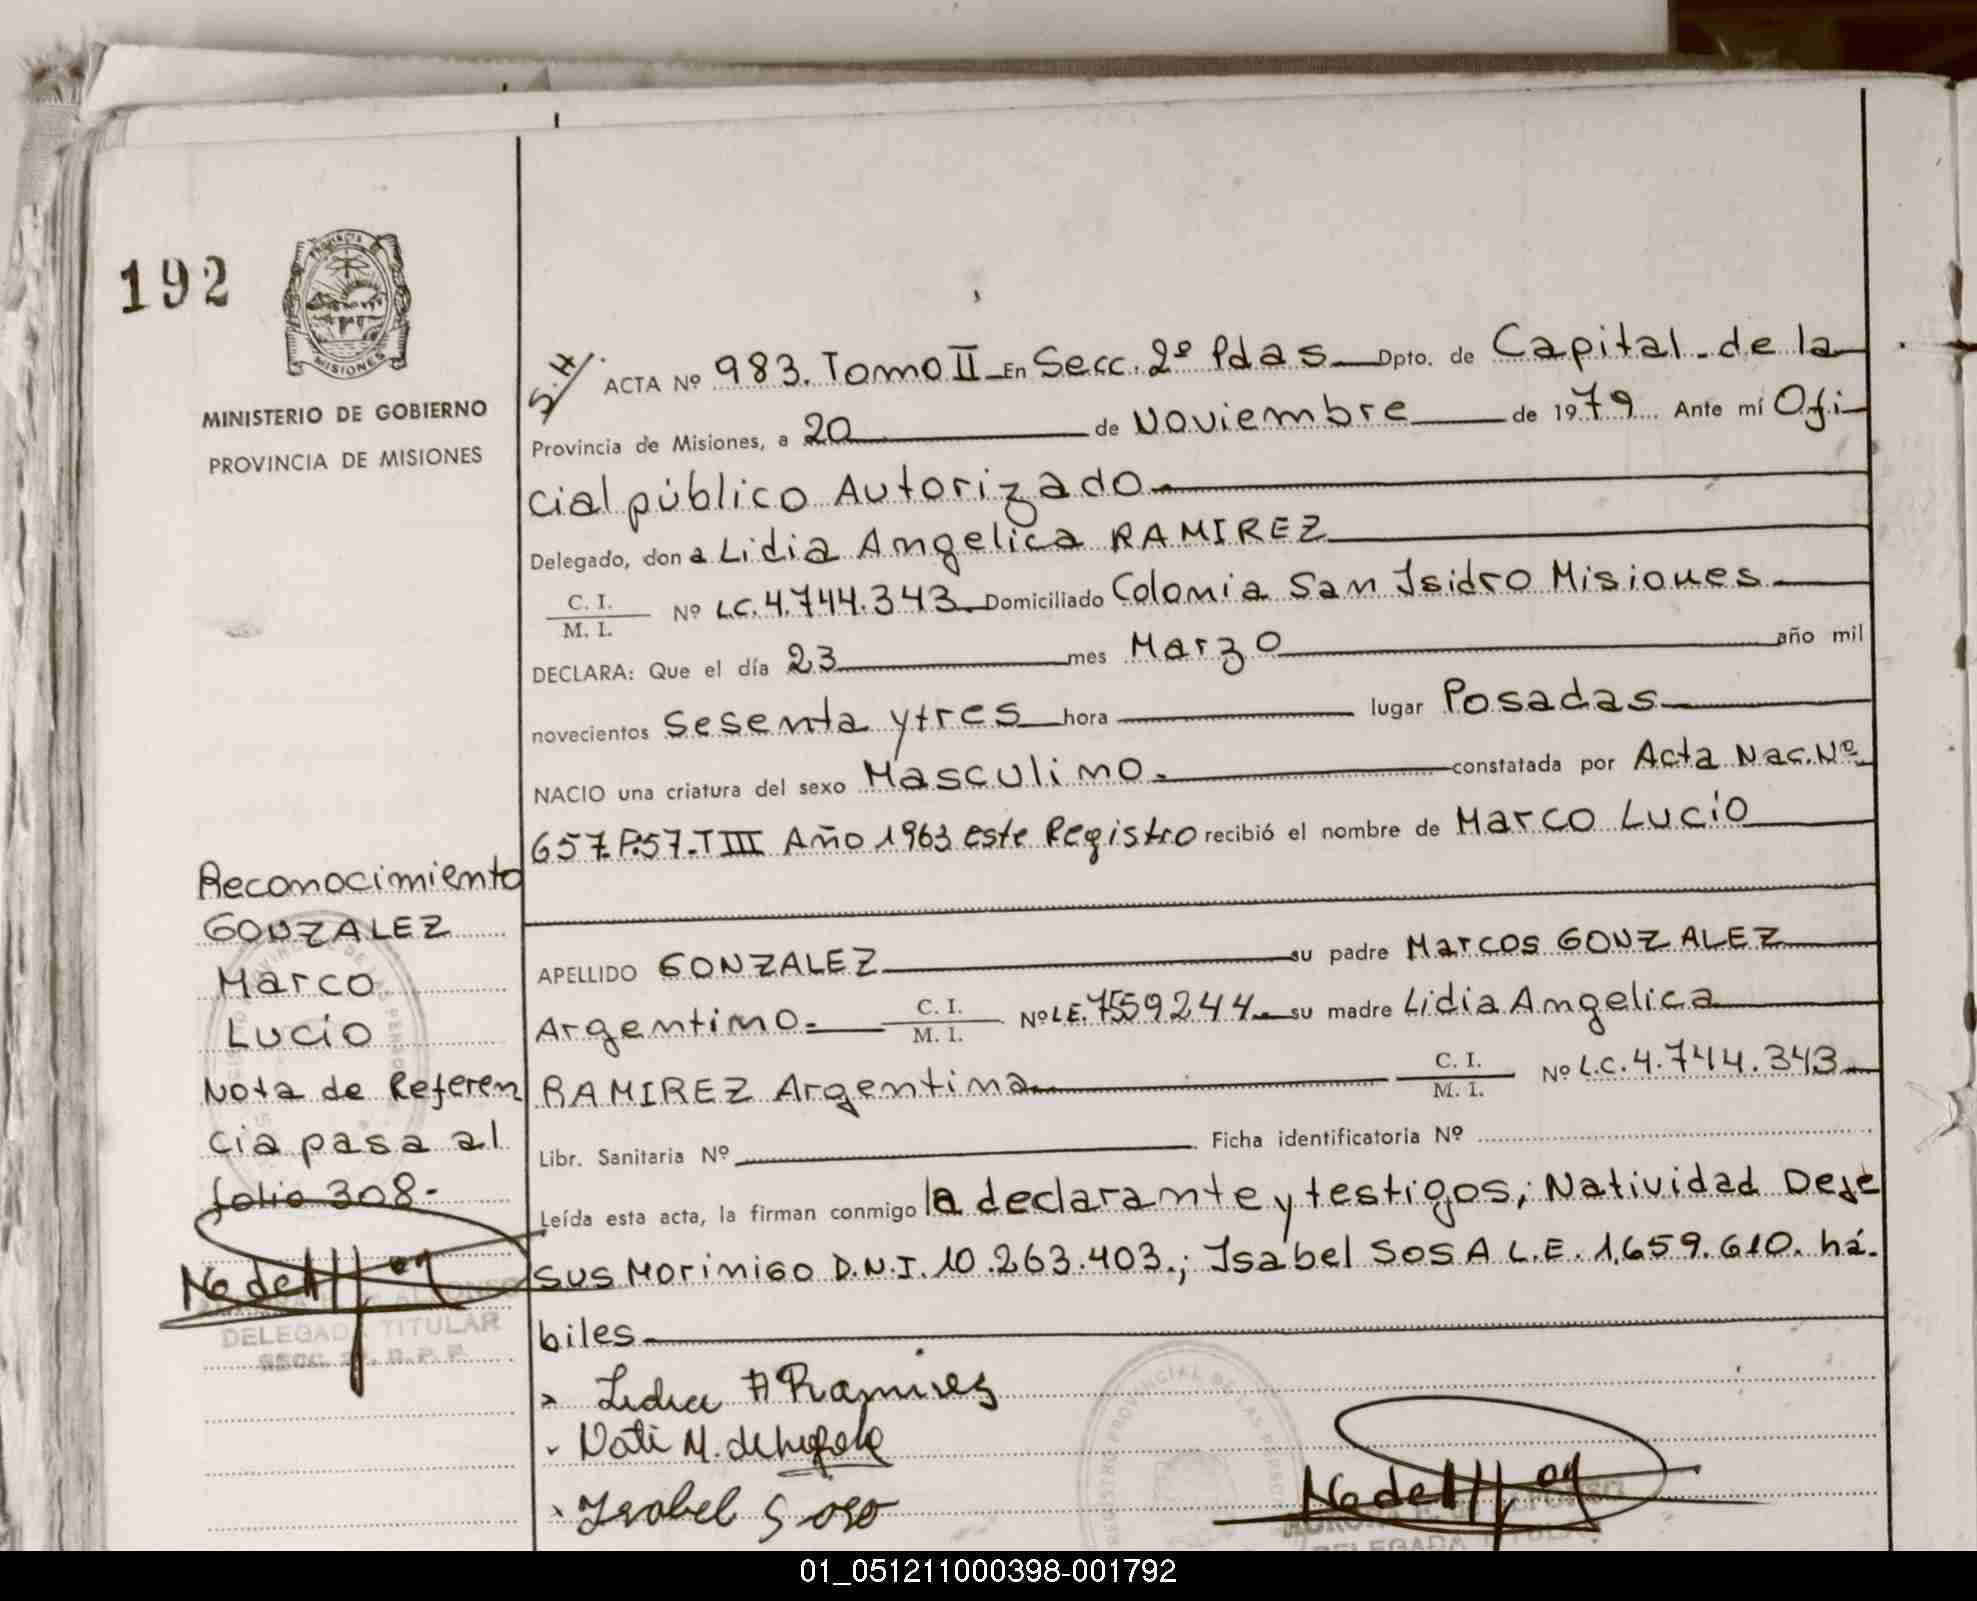 192
PROVINCIA
MISIONES
MINISTERIO DE GOBIERNO
PROVINCIA DE MISIONES
Reconocimiento
GONZALEZ
Marco
Lucio
Nota de Referen
cia pasa al
folio 308-
DELEGADA TITULAR
SECC. 2ª. R.P.P.
S.H/.
ACTA Nº 983. Tomo II En Secc. 2º Pdas Dpto. de Capital - de la
Provincia de Misiones, a 20 de Noviembre de 1979 Ante mí Ofi
cial público Autorizado
Delegado, don a Lidia Angelica RAMIREZ
C. I.
M. I. Nº L.C. 4.744.343. Domiciliado Colonia San Isidro Misiones
DECLARA: Que el día 23 mes Marzo año mil
novecientos Sesenta y tres hora lugar Posadas
NACIO una criatura del sexo Masculino. constatada por Acta Nac. Nº
657. F.57. T III Año 1963 este Registro recibió el nombre de Marco Lucio
APELLIDO GONZALEZ su padre Marcos GONZALEZ
Argentino. C. I.
M. I. Nº L.E. 7559244 su madre Lidia Angelica
RAMIREZ Argentina C. I.
M. I. Nº L.C. 4.744.343
Libr. Sanitaria Nº Ficha identificatoria Nº
Leída esta acta, la firman conmigo la declarante y testigos; Natividad DeJe
sus Morinigo D.N.I. 10.263.403.; Isabel SOSA L.E. 1.659.610. há.
biles
Lidia A Ramires
Nati M. de
Isabel Soso
REGISTRO PROVINCIAL DE LAS PERSO
DELEGADA TITULAR
01_051211000398-001792